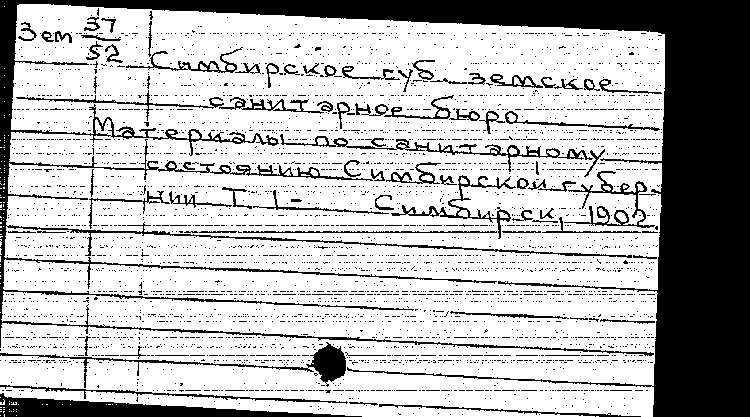 Зем 37/52
Симбирское губ. земское
санитарное бюро.
Материалы по санитарному
состоянию Симбирской губер-
нии Т. 1- Симбирск, 1902.